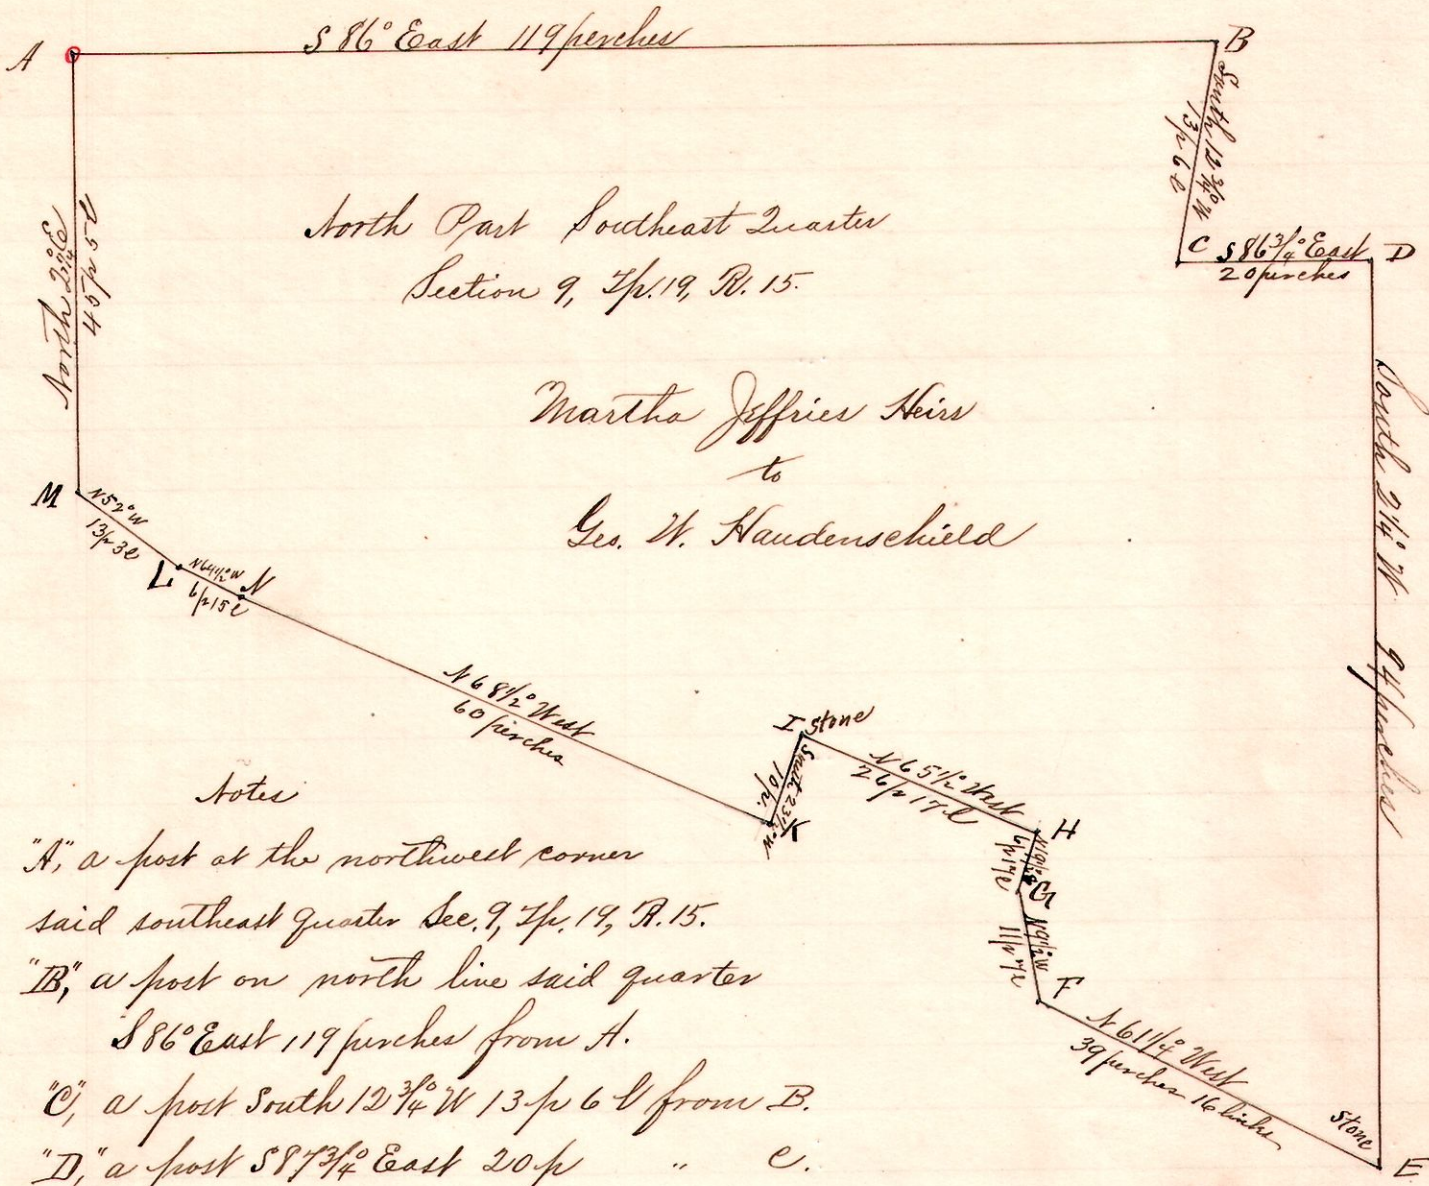 A
S 86° East 119 perches
B
South 12 3/4° W
13 p 6 l
C
S 86 3/4° East
20 perches
D
North 2 3/4° E
45 p 4
North Part Southeast Quarter
Section 9, Tp. 19, R. 15.
Martha Jeffries Heirs
to
Geo. W. Haudenschield
South 2 1/4° W 94 perches
M
N 52° W
13 p 3 l
L
N 64 1/2° W
6 p 15 l
N
N 68 1/2° West
60 perches
I Stone
South 23 1/2° W
10 p.
K
N 65 1/2° West
26 p 17 l
H
6 p 17 l
G
N 9 1/2° W
11 p 7 l
F
N 61 1/4° West
39 perches 16 links
Stone
E
Notes
"A", a post at the northwest corner
said southeast quarter Sec. 9, Tp. 19, R. 15.
"B", a post on north line said quarter
S 86° East 119 perches from A.
"C", a post South 12 3/4° W 13 p 6 l from B.
"D," a post S 87 3/4° East 20 p " C.